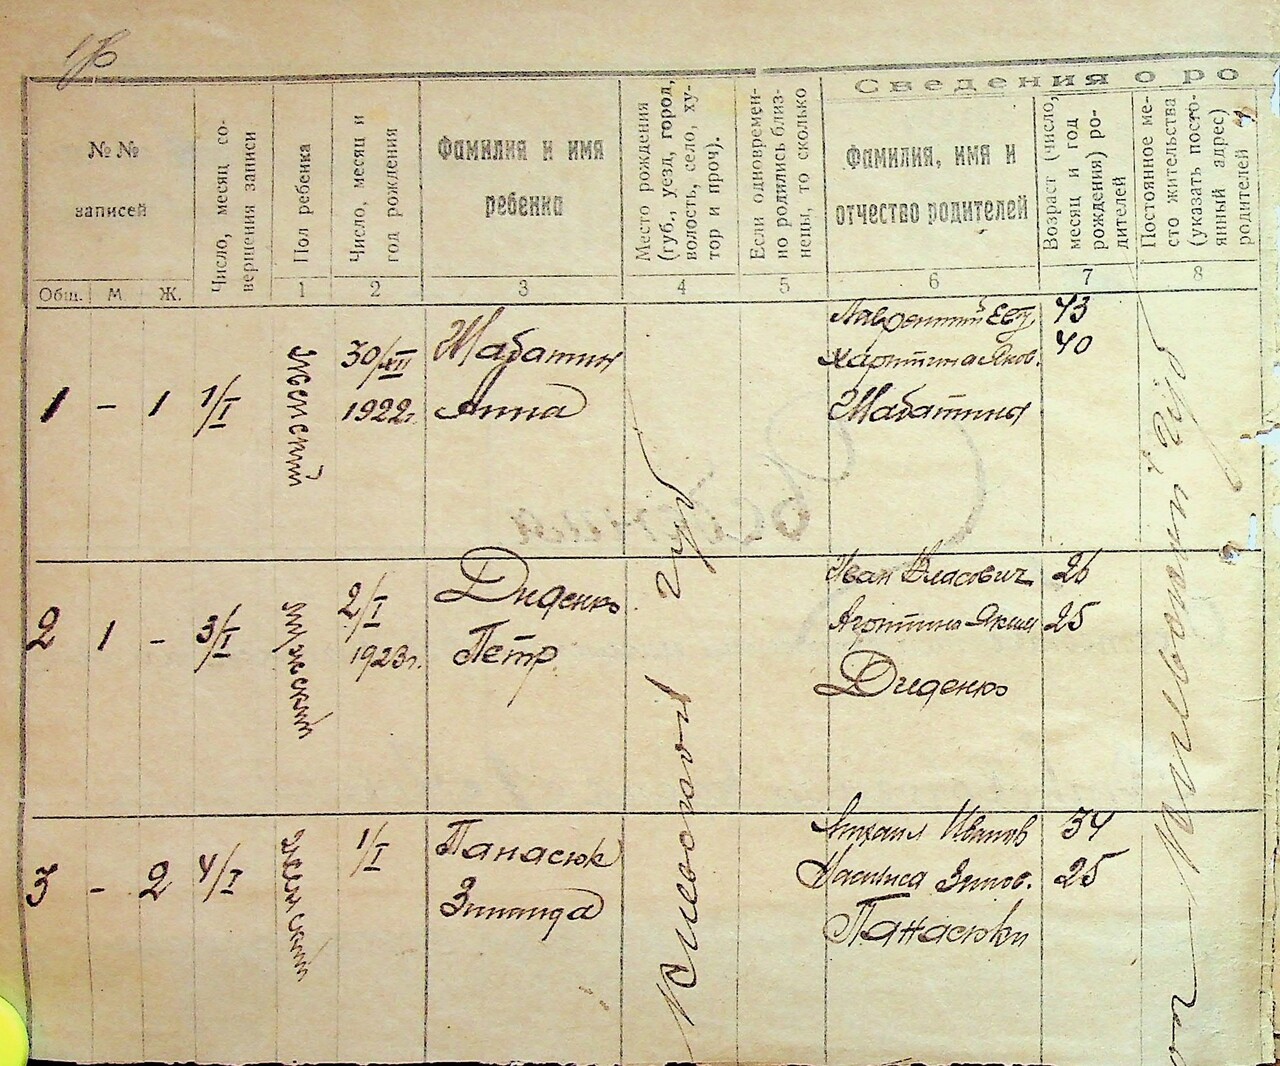 Сведения о ро
№ №
записей
Число, месяц со-
вершения записи
Пол ребенка
Число, месяц и
год рождения
Фамилия и имя
ребенка
Место рождения
(губ., уезд, город,
волость, село, ху-
тор и проч).
Если одновремен-
но родились близ-
нецы, то сколько
Фамилия, имя и
отчество родителей
Возраст (число,
месяц и год
рождения) ро-
дителей
Постоянное ме-
сто жительства
(указать посто-
янный адрес)
родителей
Общ. М. Ж. 1 2 3 4 5 6 7 8
1 - 1 1/I
Женский
30/XII
1922г.
Шабатин
Анна
Лаврентий Евт. 43
Харитина Яков. 40
Шабатины
2 1 - 3/I
Мужской
2/I
1923г.
Диденко
Петр
Иван Власович 26
Яким 25
Диденко
3 - 2 4/I
Женский
1/I
Панасюк
Зинаида
Михаил Иванов 34
Василиса Зинов. 25
Панасюки
губ